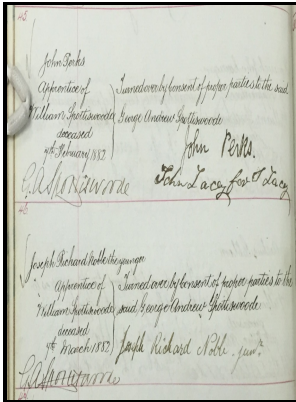 45
John Perks
Apprentice of
William Spottiswoode
deceased
7th February 1882
Turned over by consent of proper parties to the said
George Andrew Spottiswoode
John Perks.
John Lacey for T Lacy
G. A. Spottiswoode
46
Joseph Richard Noble the younger
Apprentice of
William Spottiswoode
deceased
7th March 1882
Turned over by consent of proper parties to the
said George Andrew Spottiswoode
Joseph Richard Noble junr.
G. A. Spottiswoode